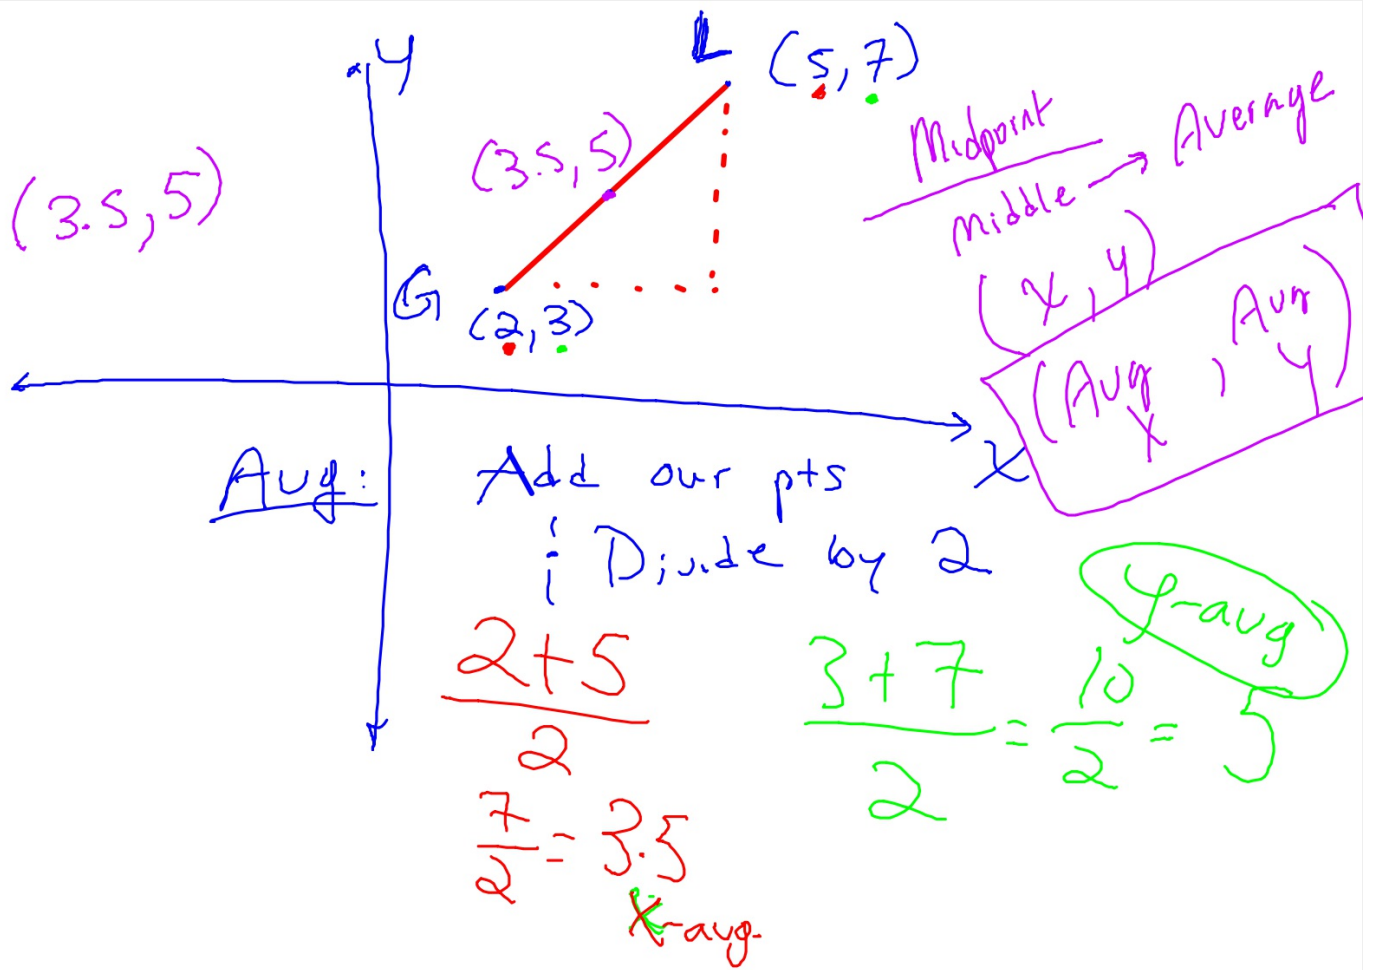 Y
L (5,7)
(3.5,5)
(3.5,5)
Midpoint
Middle → Average
(X,Y)
(Avg X, Avg Y)
G
(2,3)
X
Avg: Add our pts
& Divide by 2
2+5
2
7/2 = 3.5
X-avg.
Y-avg
3+7/2 = 10/2 = 5